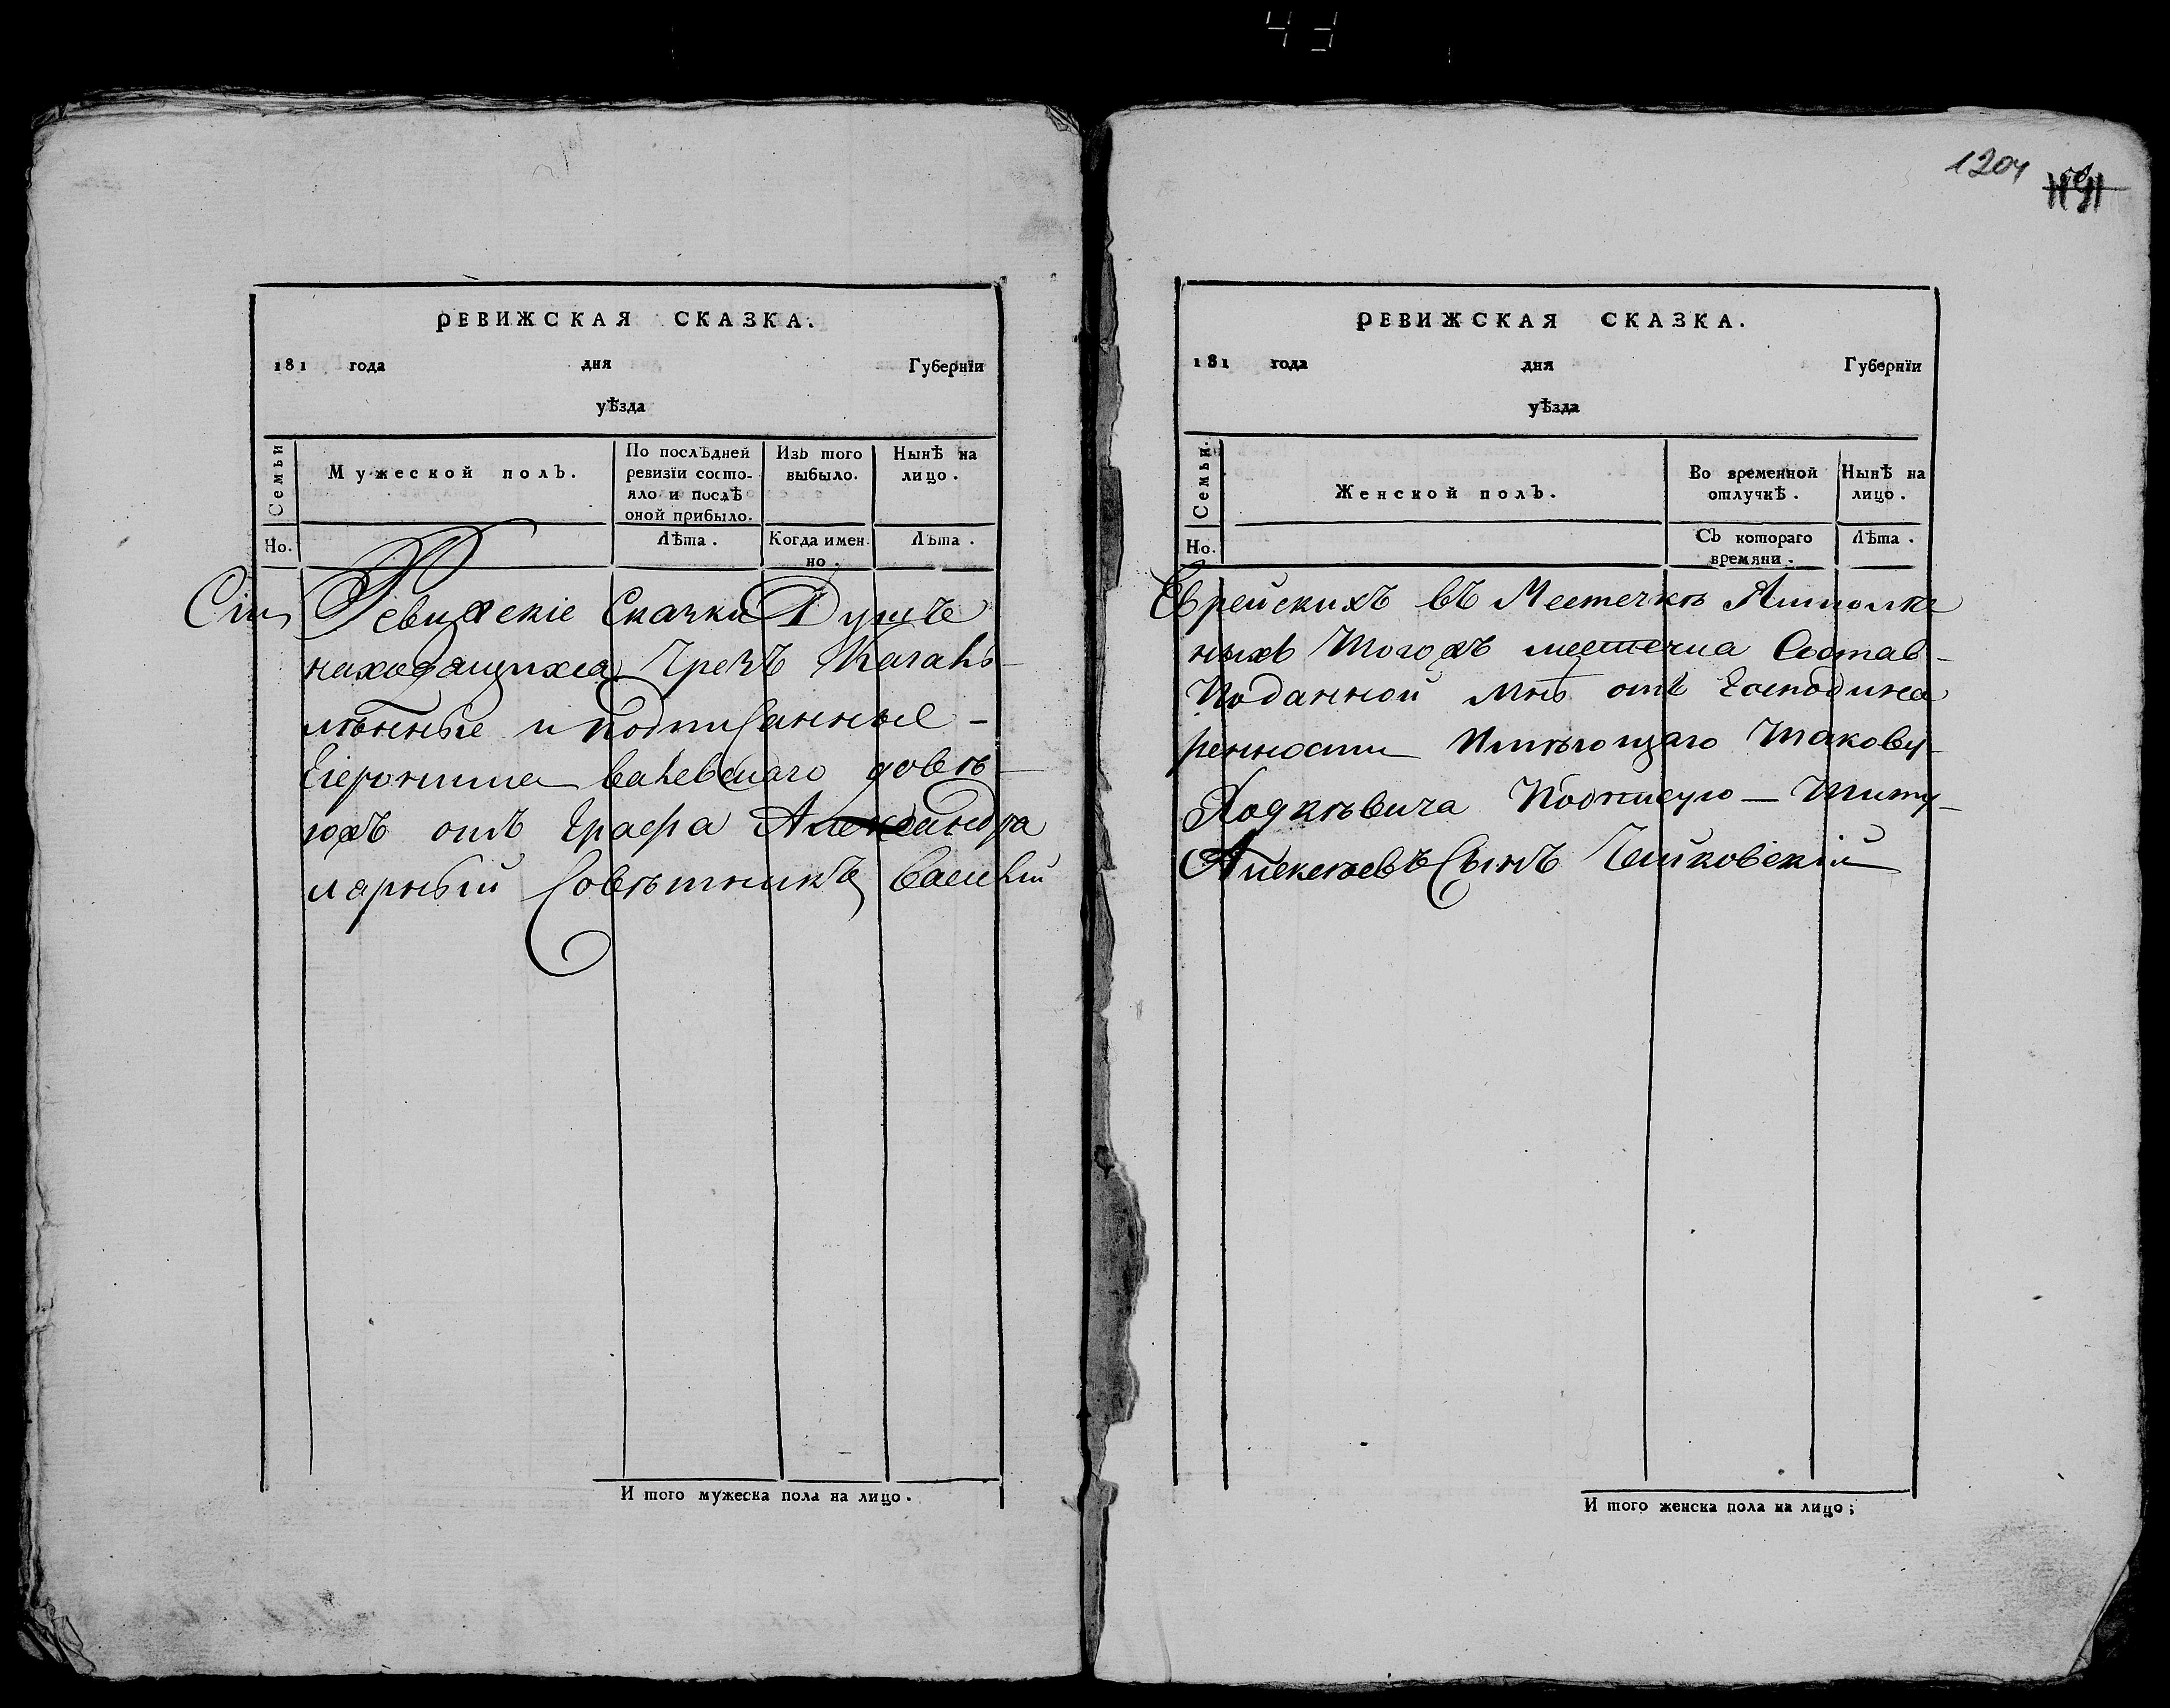 43
1204
1191
РЕВИЖСКАЯ СКАЗКА.
181 года дня Губерніи
уѣзда
Семьи
Мужеской полъ.
По послѣдней ревизіи состо-
яло и послѣ оной прибыло.
Изъ того выбыло.
Нынѣ на лицо.
Но.
Лѣта.
Когда имен-
но.
Лѣта.
Сіи Ревижскіе Скачки Душъ
находящихся Чрезъ Кагалъ
лѣнные и подписанные —
Еіеронима довѣ-
юхъ отъ Графа Александра
лярный Совѣтникъ Василій
И того мужеска пола на лицо.
РЕВИЖСКАЯ СКАЗКА.
181 года дня Губерніи
уѣзда
Семьи.
Женской полъ.
Во временной отлучкѣ.
Нынѣ на лицо.
Но.
Съ котораго времяни.
Лѣта.
Еврейскихъ въ Местечкѣ
ныхъ Тогожъ местечка Состав-
Поданной Мнѣ отъ Господина
ренности Имѣющаго Такову-
Ходкѣвича Подписую — Титу-
Алексѣевъ Сынъ
И того женска пола на лицо;